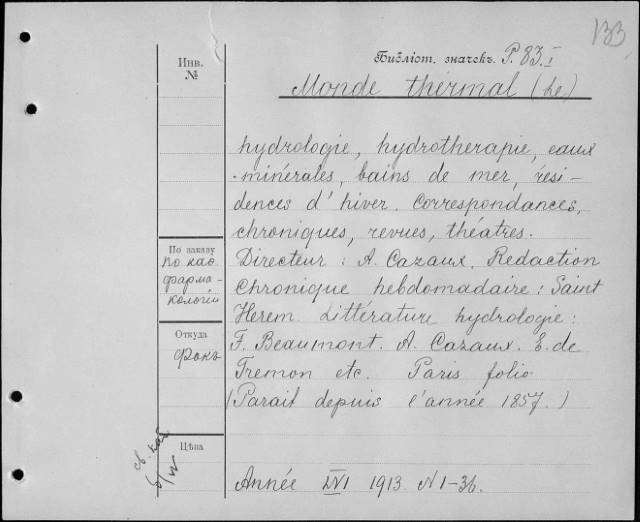 133
Инв. №
Библіот. значекъ. P. 83. I
Monde thermal (Le)
hydrologie, hydrotherapie, eaux
minérales, bains de mer, rési-
dences d'hiver. Correspondances,
chroniques, revues, théatres.
Directeur: A. Cazaux. Redaction
Chronique hebdomadaire: Saint
Herem. Littérature hydrologie:
F. Beaumont. A. Cazaux. E. de
Tremon etc. Paris folio
(Parait depuis l'année 1857.)
Année LVI 1913 N 1-36.
По заказу
по каѳ.
фарма-
кологіи
Откуда
Фокъ
Цѣна